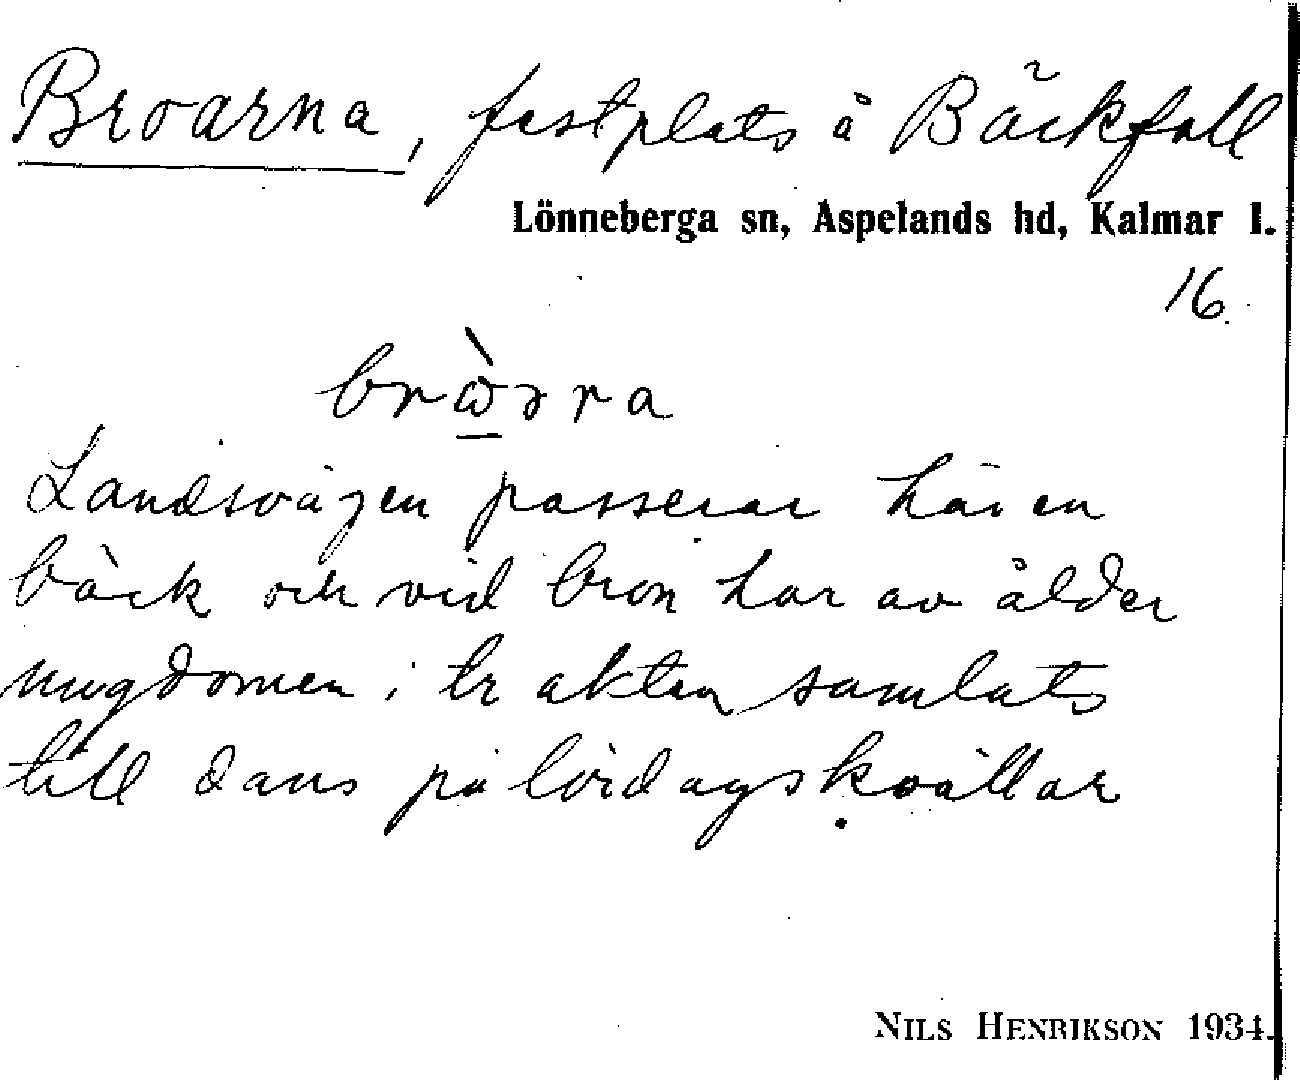 Broarna, festplats å Bäckfall
Lönneberga sn, Aspelands hd, Kalmar l.
16.
brὼɜra
Landsvägen passerar här en
bäck och vid bron har av ålder
ungdomen i trakten samlats
till dans på lördagskvällar
NILS HENRIKSON 1934.